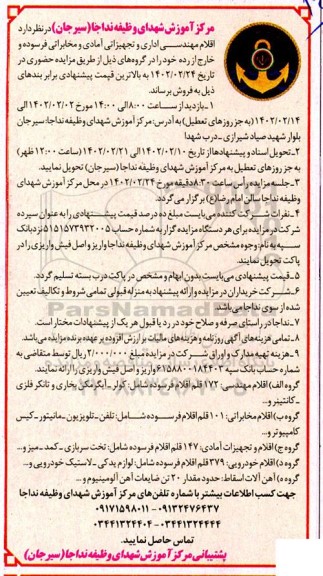 مرکز آموزش شهدای وظیفه نداجا (سیرجان) در نظر دارد
اقلام مهندسی، اداری و تجهیزاتی آمادی و مخابراتی فرسوده و
خارج از رده خود را در گروه‌های ذیل از طریق مزایده حضوری در
تاریخ ۱۴۰۲/۰۲/۲۴ به بالاترین قیمت پیشنهادی برابر بندهای
ذیل به فروش برساند.
۱-بازدید از ساعت ۸:۰۰ الی ۱۴:۰۰ مورخ ۱۴۰۲/۰۲/۰۲ الی
۱۴۰۲/۰۲/۱۴ (به جز روزهای تعطیل) به آدرس: مرکز آموزش شهدای وظیفه نداجا: سیرجان
بلوار شهید صیاد شیرازی - درب شهدا
۲-تحویل اسناد و پیشنهادها از تاریخ ۱۴۰۲/۰۲/۱۰ الی ۱۴۰۲/۰۲/۲۱ (ساعت ۱۲:۰۰ ظهر)
به جز روزهای تعطیل به مرکز آموزش شهدای وظیفه نداجا (سیرجان) تحویل نمایید.
۳-جلسه مزایده رأس ساعت ۸:۳۰ دقیقه مورخ ۱۴۰۲/۰۲/۲۴ در محل مرکز آموزش شهدای
وظیفه نداجا سالن امام رضا(ع) برگزار می‌گردد.
۴-نفرات شرکت کننده می‌بایست مبلغ ده درصد قیمت پیشنهادی را به عنوان سپرده
شرکت در مزایده برای هر دستگاه مزایده گزار به شماره حساب ۵۱۵۱۵۷۳۹۳۲۰۰۵ نزد بانک
سپه به نام: وجوه مشخص مرکز آموزش شهدای وظیفه نداجا واریز و اصل فیش واریزی را در
پاکت تحویل نمایند.
۵-قیمت پیشنهادی می‌بایست بدون ابهام و مشخص در پاکت درب بسته تسلیم گردد.
۶-شرکت خریداران در مزایده و ارائه پیشنهاد به منزله قبولی تمامی شروط و تکالیف تعیین
شده از سوی نداجا می‌باشد.
۷-نداجا در راستای صرفه و صلاح خود در رد یا قبول هر یک از پیشنهادات مختار است.
۸-تمامی هزینه‌های آگهی روزنامه و هزینه‌های مالیات بر ارزش افزوده بر عهده برنده مزایده می‌باشد.
۹-هزینه تهیه مدارک و اوراق شرکت در مزایده مبلغ ۲/۰۰۰/۰۰۰ ریال توسط متقاضی به
شماره حساب بانک سپه ۶۱۵۸۸۰۰۰۱۸۴۴۰۳ واریز و اصل فیش واریزی را ارائه نمایند.
گروه الف) اقلام مهندسی: ۱۷۲ قلم اقلام فرسوده شامل: کولر - آبگرمکن بخاری و تانکر فلزی
-کانتینر و...
گروه ب) اقلام مخابراتی: ۱۰۱ قلم اقلام فرسوده شامل: تلفن- تلویزیون - مانیتور- کیس
کامپیوتر و...
گروه ج) اقلام و تجهیزات آمادی: ۱۴۷ قلم اقلام فرسوده شامل: تخت سربازی - کمد - میز و...
گروه د) اقلام خودرویی: ۳۷۹ قلم اقلام فرسوده شامل: لوازم یدکی - لاستیک خودرویی و...
گروه ه) آهن آلات اسقاط: حدود مقدار ۲۰ تن ضایعات آهن آلومینیوم و...
جهت کسب اطلاعات بیشتر با شماره تلفن‌های مرکز آموزش شهدای وظیفه نداجا
۰۹۱۳۲۴۷۶۴۳۷ - ۰۹۱۷۱۵۹۸۰۱۱
۰۳۴۴۱۳۲۴۴۴۴ - ۰۳۴۴۱۳۲۴۴۰۴
تماس حاصل نمایید.
پشتیبانی مرکز آموزش شهدای وظیفه نداجا (سیرجان)